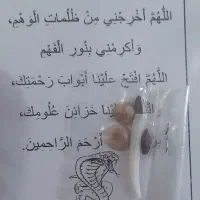 اللَّهُمَّ أَخْرِجْنِي مِنْ ظُلُمَاتِ الْوَهْمِ،
وَأَكْرِمْنِي بِنُورِ الْفَهْمِ
اللَّهُمَّ افْتَحْ عَلَيْنَا أَبْوَابَ رَحْمَتِكَ،
عَلَيْنَا خَزَائِنَ عُلُومِكَ،
أَرْحَمَ الرَّاحِمِينَ.